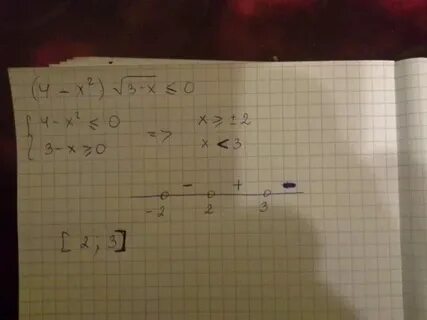 (4 - x²) √3-x ≤ 0
{ 4 - x² ≤ 0 => x ≥ ± 2
3 - x ≥ 0 x < 3
- + -
-2 2 3
[ 2 ; 3 ]